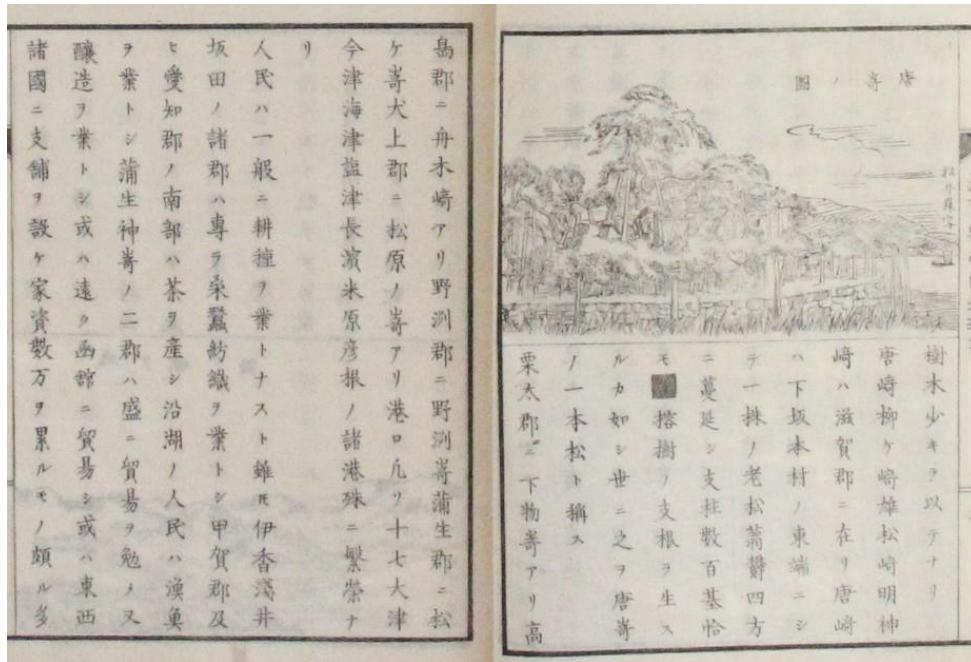 唐嵜ノ圖
樹木少キヲ以テナリ
唐﨑柳ケ﨑雄松﨑明神
﨑ハ滋賀郡ニ在リ唐﨑
ハ下坂本村ノ東端ニシ
テ一株ノ老松蓊欝四方
ニ蔓延シ支柱數百基恰
モ榕樹ノ支根ヲ生ス
ルカ如シ世ニ之ヲ唐嵜
ノ一本松ト稱ス
栗太郡ニ下物嵜アリ高
島郡ニ舟木﨑アリ野洲郡ニ野洲嵜蒲生郡ニ松
ケ嵜犬上郡ニ松原ノ嵜アリ港口凡ソ十七大津
今津海津盐津長濱米原彦根ノ諸港殊ニ繁榮ナ
リ
人民ハ一般ニ耕種ヲ業トナスト雖モ伊香淺井
坂田ノ諸郡ハ專ラ桒蠶紡織ヲ業トシ甲賀郡及
ヒ愛知郡ノ南部ハ茶ヲ産シ沿湖ノ人民ハ漁魚
ヲ業トシ蒲生神嵜ノ二郡ハ盛ニ貿易ヲ勉メ又
釀造ヲ業トシ或ハ遠ク函舘ニ貿易シ或ハ東西
諸國ニ支舗ヲ設ケ家資數万ヲ累ルモノ頗ル多